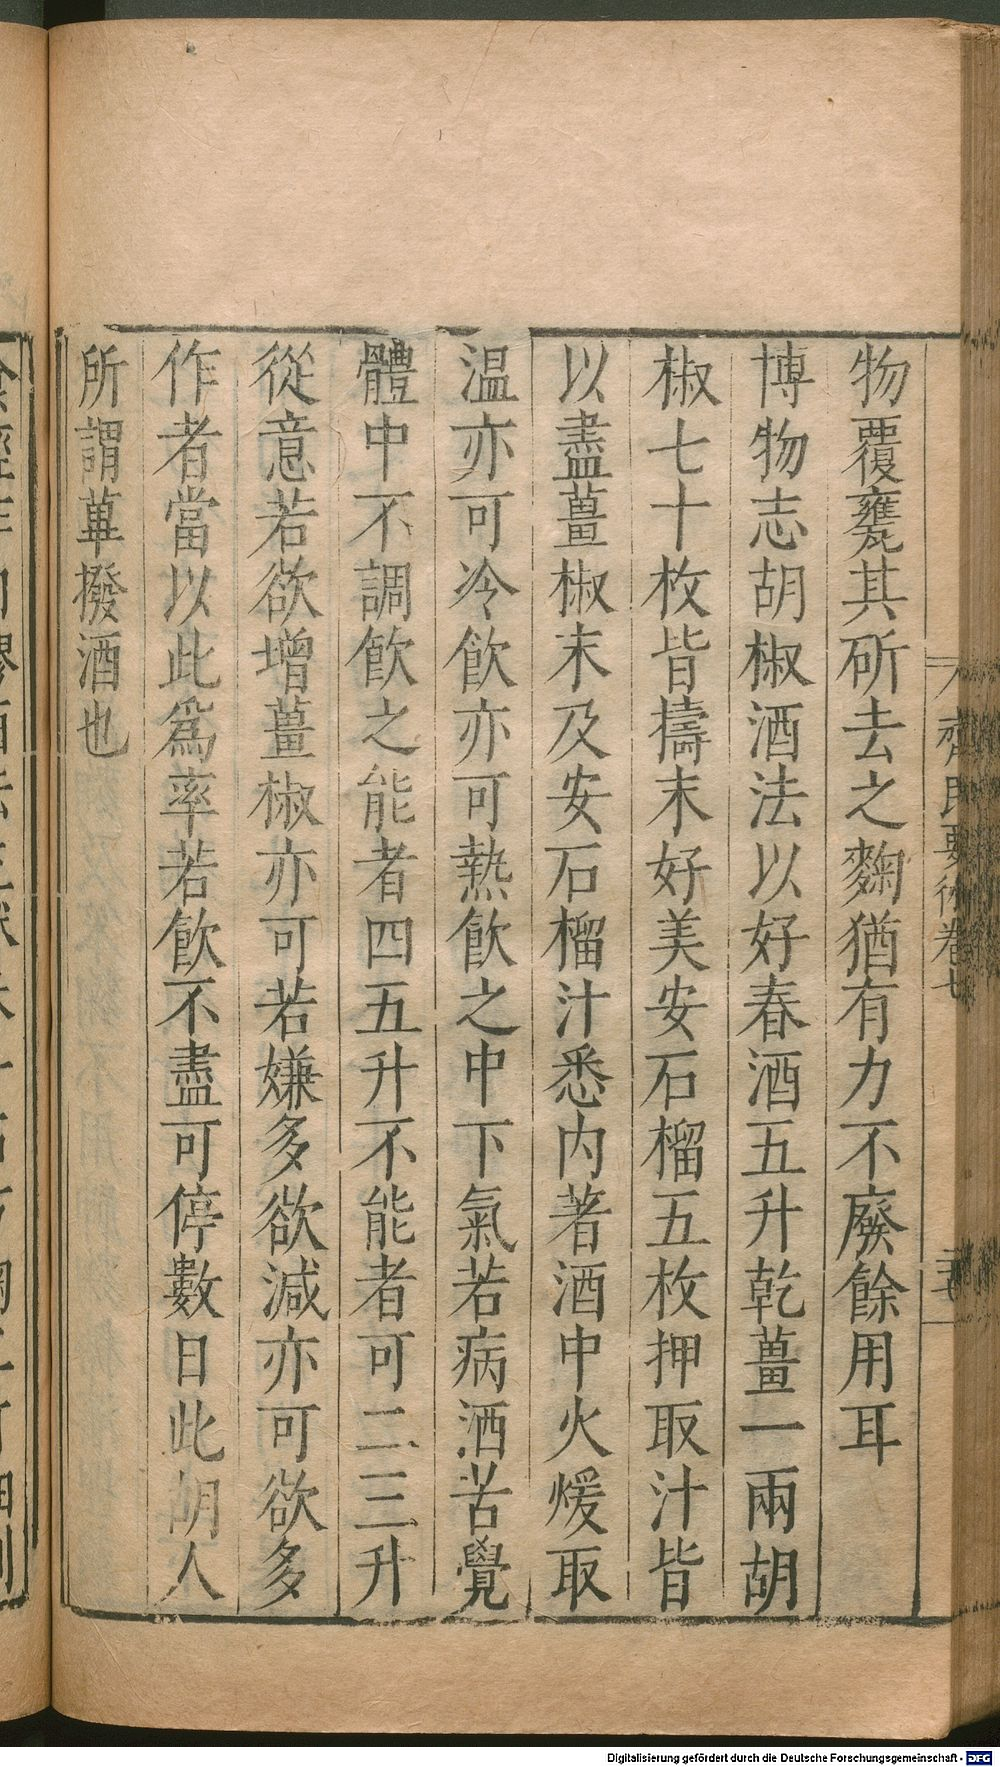 物覆甕其斫去之麴猶有力不廢餘用耳
博物志胡椒酒法以好春酒五升乾薑一兩胡
椒七十枚皆擣末好美安石榴五枚押取汁皆
以盡薑椒末及安石榴汁悉內著酒中火煖取
温亦可冷飲亦可熱飲之中下氣若病酒苦覺
體中不調飲之能者四五升不能者可二三升
從意若欲增薑椒亦可若嫌多欲減亦可欲多
作者當以此爲率若飲不盡可停數日此胡人
所謂蓽撥酒也
齊民要術卷七
Digitalisierung gefördert durch die Deutsche Forschungsgemeinschaft - DFG